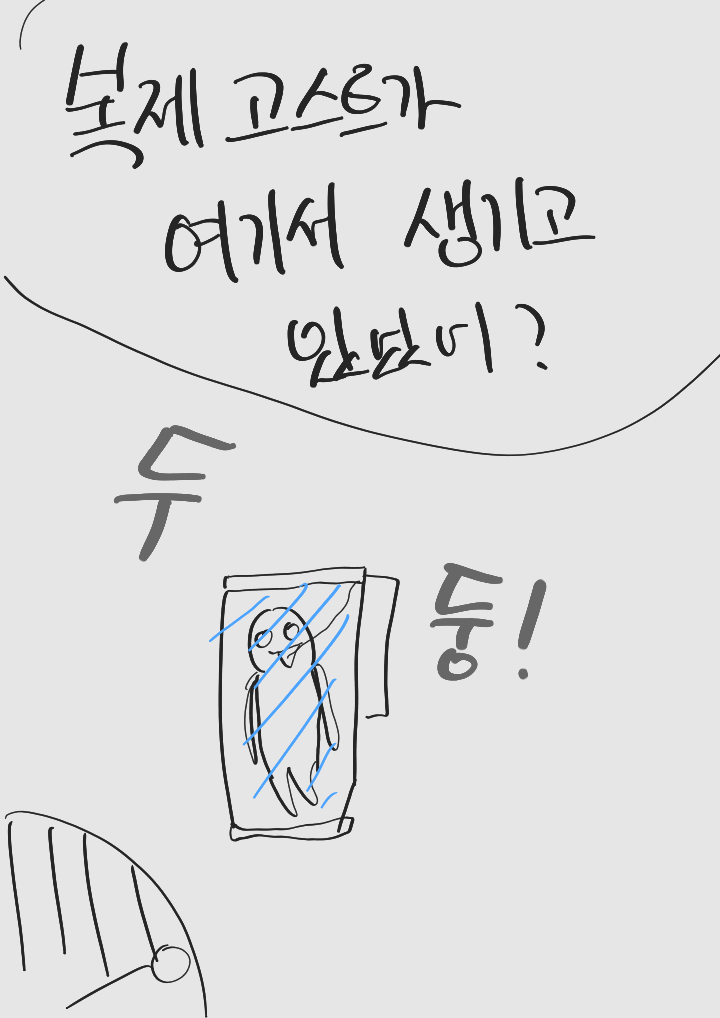 복제 고스트가
여기서 생기고
있던거?
두
둥!